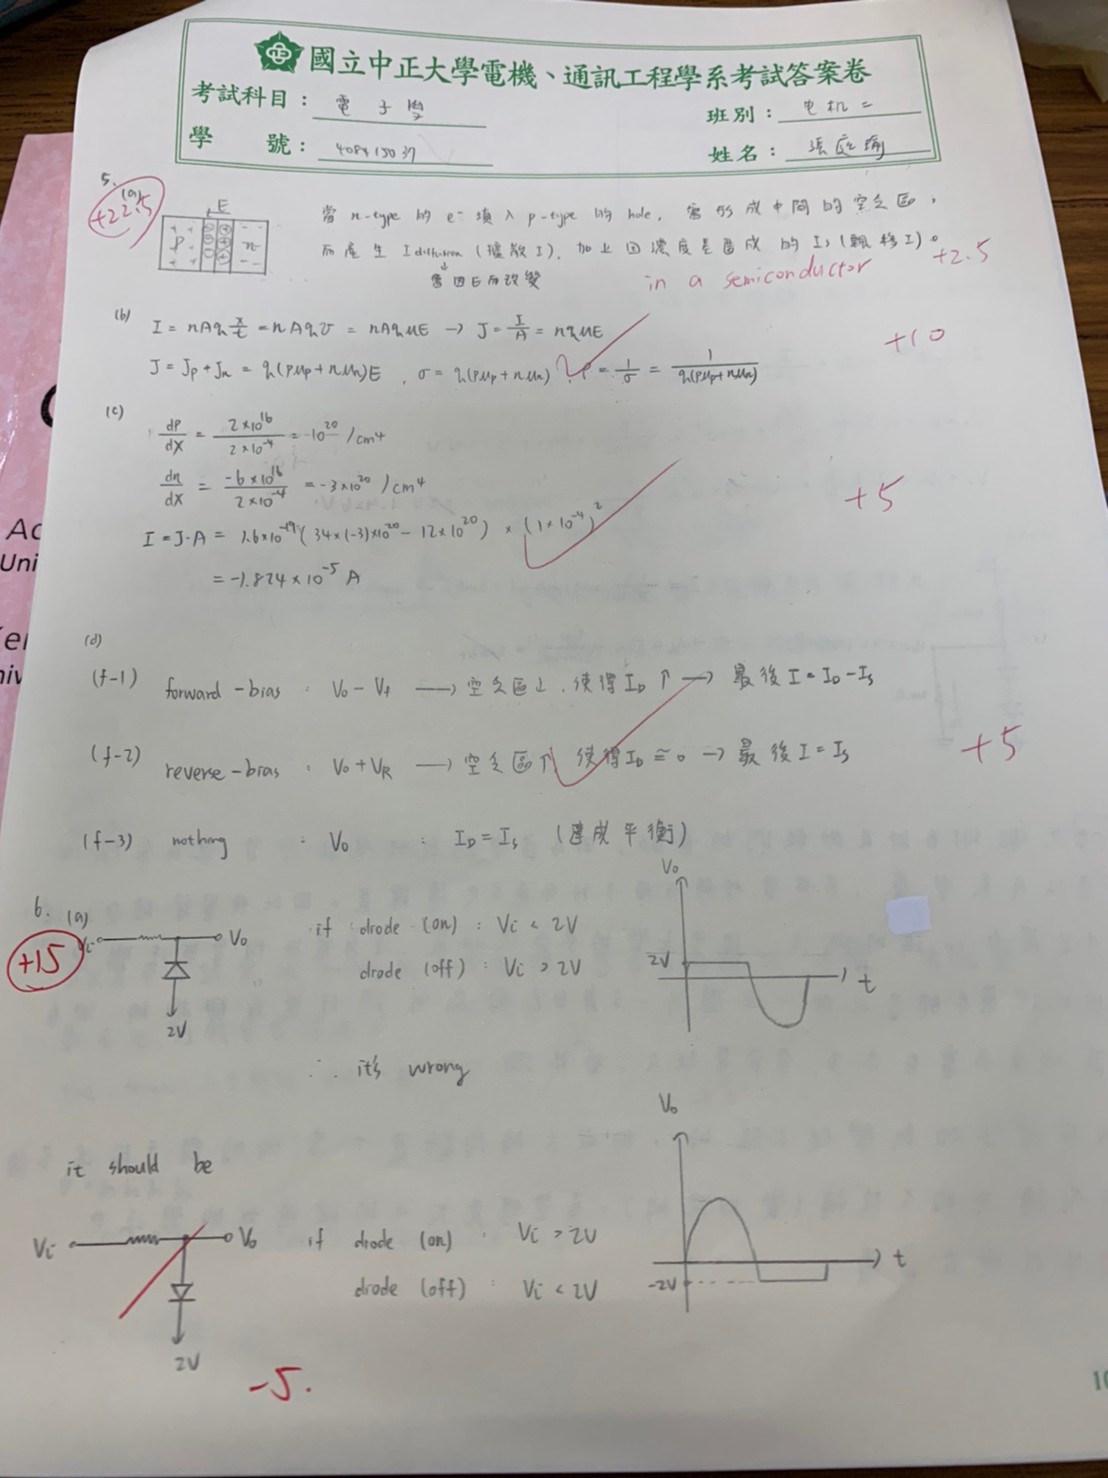 國立中正大學電機、通訊工程學系考試答案卷
考試科目： 電子學
班別： 电机二
學 號：
姓名： 張庭瑜
5.
(a)
+22.5
E
P n
當 n-type 的 e⁻ 填入 p-type 的 hole，會形成中間的空乏區，
而產生 Idiffusion (擴散 I)，加上因濃度差造成的 Is (飄移 I)。
會因E而改變
in a semiconductor
+2.5
(b)
I = nAq x/t = nAqv = nAqμE → J = I/A = nqμE
J = Jp + Jn = q(pμp + nμn)E , σ = q(pμp + nμn) , ρ = 1/σ = 1/q(pμp + nμn)
+10
(c)
dP/dx = 2×10^16 / 2×10^-4 = 10^20 /cm4
dn/dx = -6×10^16 / 2×10^-4 = -3×10^20 /cm4
I = J·A = 1.6×10^-19 (34×(-3)×10^20 - 12×10^20) × (1×10^-4)^2
= -1.824×10^-5 A
+5
(d)
(f-1) forward-bias : V0 - Vf → 空乏區↓，使得ID ↑ → 最後 I = ID - Is
(f-2) reverse-bias : V0 + VR → 空乏區↑，使得ID ≅ 0 → 最後 I = Is
+5
(f-3) nothing : V0 : ID = Is (達成平衡)
6. (a)
+15
Vi Vo
2V
if diode (on) : Vi < 2V
diode (off) : Vi > 2V
Vo
2V
t
∴ it's wrong
it should be
Vi Vo
2V
if diode (on) : Vi > 2V
diode (off) : Vi < 2V
Vo
-2V
t
-5.